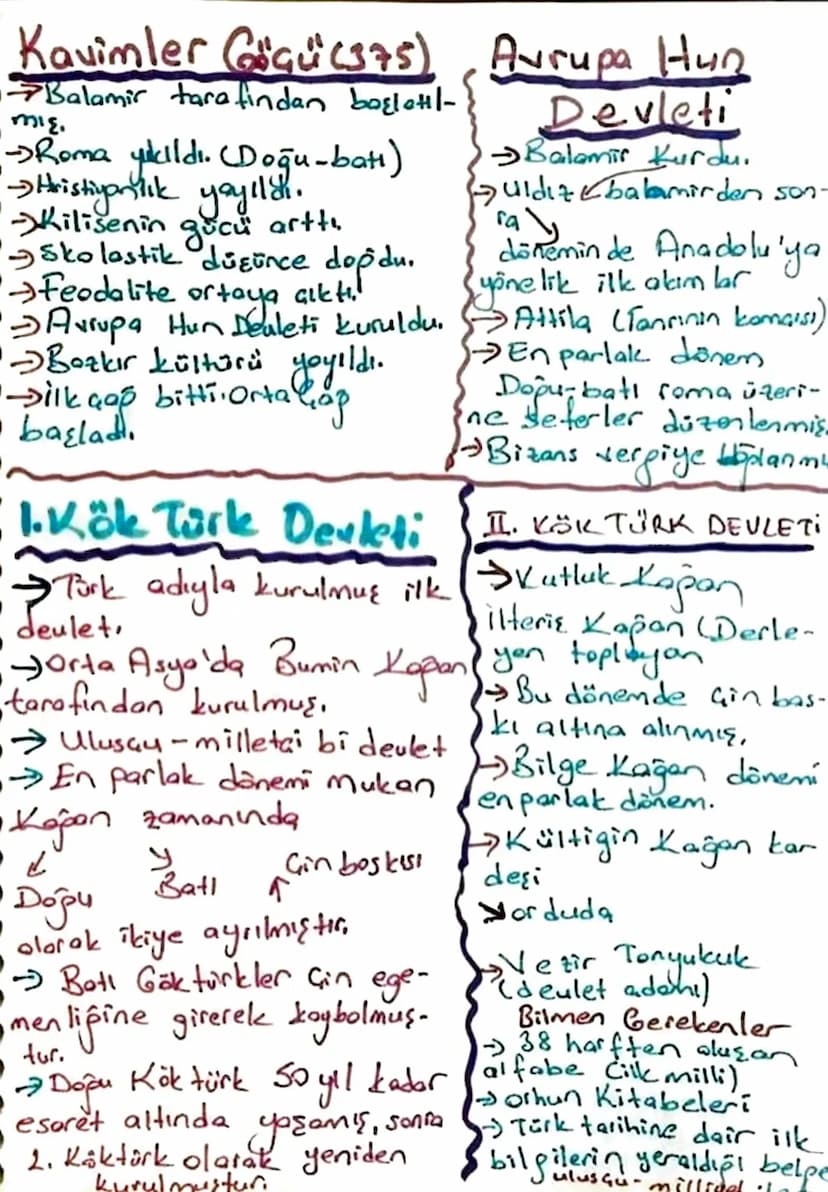 Kavimler Göçü (375)
→ Balamir tarafından başlatıl-
mış.
→ Roma yıkıldı. (Doğu-batı)
→ Hristiyanlık yayıldı.
→ Kilisenin gücü arttı.
→ Skolastik düşünce doğdu.
→ Feodalite ortaya çıktı.
→ Avrupa Hun Devleti kuruldu.
→ Bozkır kültürü yayıldı.
→ ilk çağ bitti. Orta Çağ
başladı.
Avrupa Hun
Devleti
→ Balamir Kurdu.
→ Uldız ↙ balamirden son-
ra ↘
döneminde Anadolu'ya
yönelik ilk akımlar
→ Attila (Tanrının kamçısı)
→ En parlak dönem
Doğu-batı roma üzeri-
ne seferler düzenlenmiş.
→ Bizans vergiye
1. Kök Türk Devleti
→ Türk adıyla kurulmuş ilk
devlet.
→ Orta Asya'da Bumin Kağan
tarafından kurulmuş.
→ Ulusçu-milletçi bi devlet
→ En parlak dönemi mukan
Kağan zamanında
↙ ↘ Çin baskısı
Doğu Batı ↑
olarak ikiye ayrılmıştır.
→ Batı Göktürkler Çin ege-
menliğine girerek kaybolmuş-
tur.
→ Doğu Köktürk 50 yıl kadar
esaret altında yaşamış, sonra
2. Köktürk olarak yeniden
kurulmuştur.
II. KÖK TÜRK DEVLETİ
→ Kutluk Kağan
ilteriş Kağan (Derle-
yen toplayan
→ Bu dönemde Çin bas-
kı altına alınmış.
→ Bilge Kağan dönemi
en parlak dönem.
→ Kültigin Kağan kar
deşi
↘ orduda
→ Vezir Tonyukuk
(devlet adamı)
Bilmen Gerekenler
→ 38 harften oluşan
alfabe (ilk milli)
→ Orhun Kitabeleri
→ Türk tarihine dair ilk
bilgilerin yeraldığı belge
ulusçu-